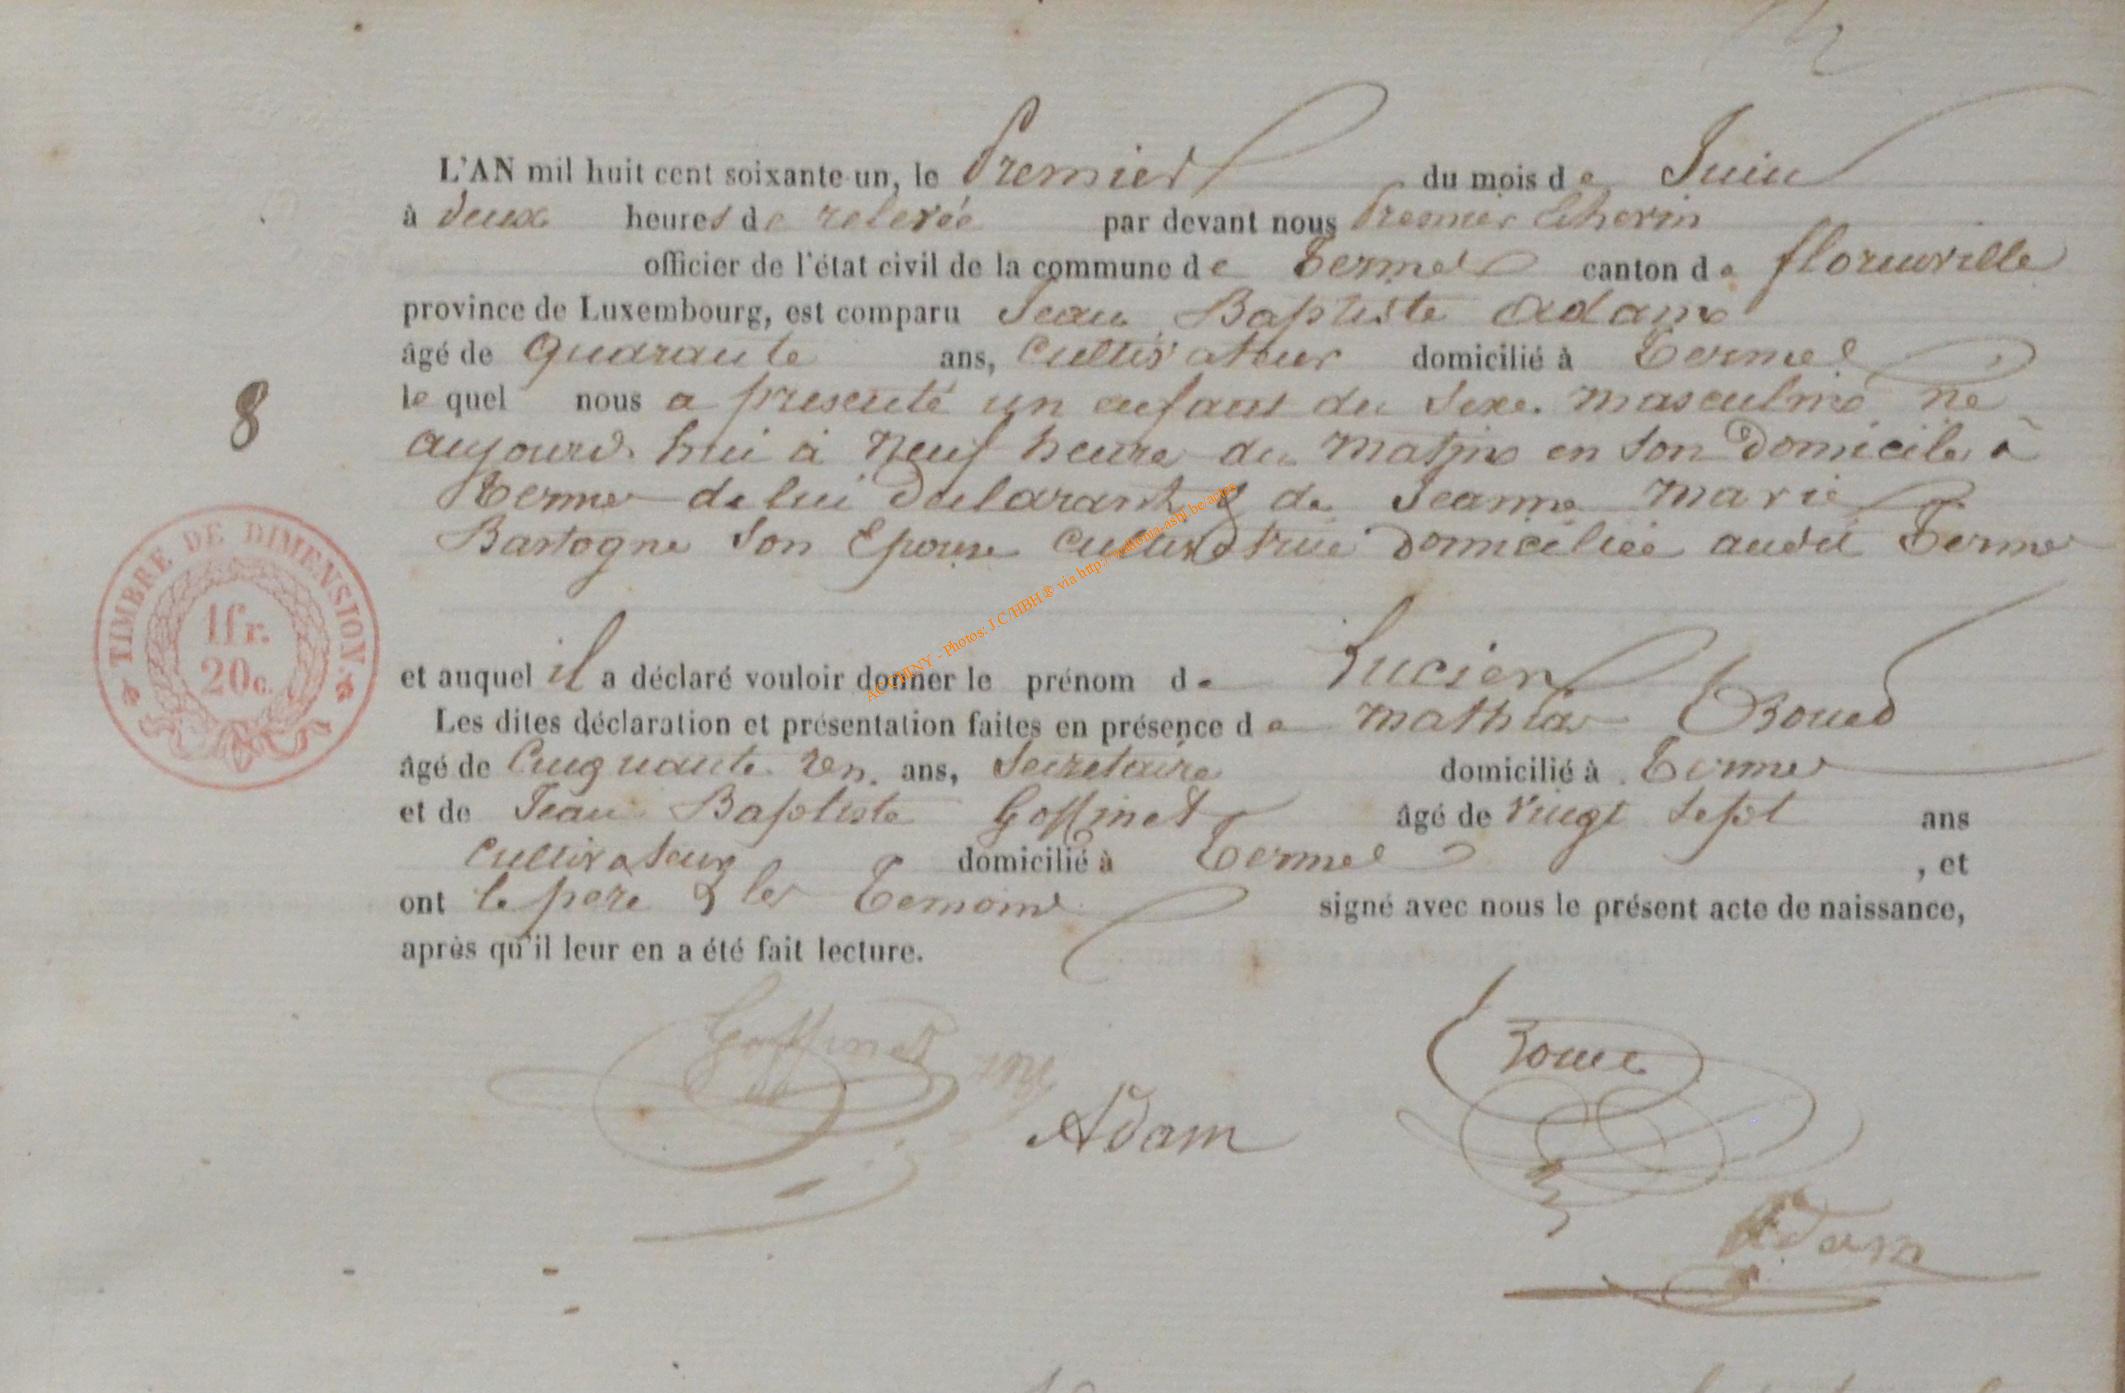 L'AN mil huit cent soixante-un, le Premier du mois de Juin
à deux heures de relevée par devant nous Premier Echevin
officier de l'état civil de la commune de Termes canton de florenville
province de Luxembourg, est comparu Jean Baptiste Adam
âgé de quarante ans, Cultivateur domicilié à Termes
le quel nous a presenté un enfant du Sexe masculin né
aujourd'hui à Neuf heure du Matin en son Domicile à
8
Termes de lui déclarant & de Jeanne Marie
Bastogne Son Epouse Cultivatrice Domiciliée audit Termes
TIMBRE DE DIMENSION.
1fr.
20c.
et auquel il a déclaré vouloir donner le prénom de Lucien
Les dites déclaration et présentation faites en présence de Mathias
âgé de Cinquante ans, Secretaire domicilié à Termes
et de Jean Baptiste Goffinet âgé de Vingt Sept ans
Cultivateur domicilié à Termes , et
ont le père & les Temoins signé avec nous le présent acte de naissance,
après qu'il leur en a été fait lecture.
Goffinet
Adam
Adam
AC CHINY - Photos: J.C/HBH ® via